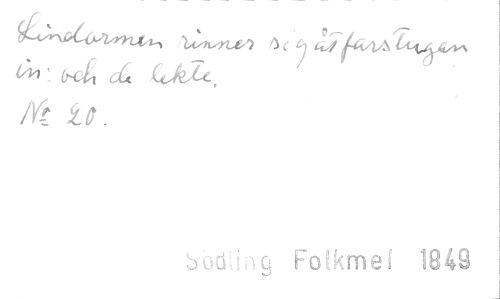 Lindormen rinner sig åt farstugan
in: och de lekte.
No 20.
Södling Folkmel 1849